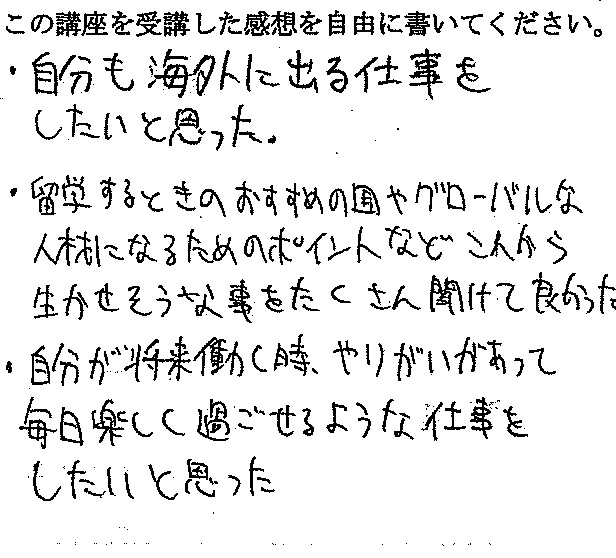 この講座を受講した感想を自由に書いてください。
・自分も海外に出る仕事を
したいと思った。
・留学するときのおすすめの国やグローバルな
人材になるためのポイントなどこれから
生かせそうな事をたくさん聞けて良かった
・自分が将来働く時、やりがいがあって
毎日楽しく過ごせるような仕事を
したいと思った